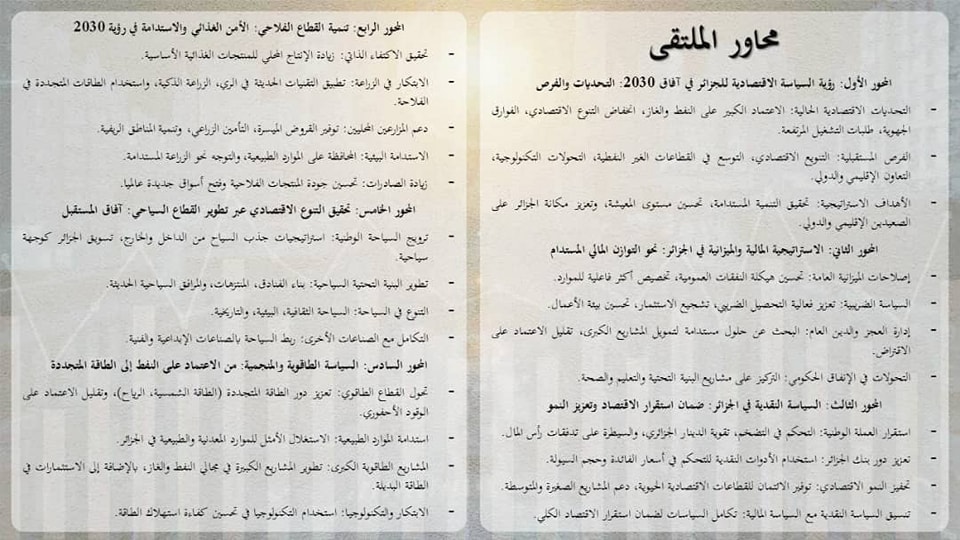 محاور الملتقى
المحور الأول: رؤية السياسة الاقتصادية للجزائر في آفاق 2030: التحديات والفرص
- التحديات الاقتصادية الحالية: الاعتماد الكبير على النفط والغاز، انخفاض التنوع الاقتصادي، الفوارق
الجهوية، طلبات التشغيل المرتفعة.
- الفرص المستقبلية: التنويع الاقتصادي، التوسع في القطاعات الغير النفطية، التحولات التكنولوجية،
التعاون الإقليمي والدولي.
- الأهداف الاستراتيجية: تحقيق التنمية المستدامة، تحسين مستوى المعيشة، وتعزيز مكانة الجزائر على
الصعيدين الإقليمي والدولي.
المحور الثاني: الاستراتيجية المالية والميزانية في الجزائر: نحو التوازن المالي المستدام
- إصلاحات الميزانية العامة: تحسين هيكلة النفقات العمومية، تخصيص أكثر فاعلية للموارد.
- السياسة الضريبية: تعزيز فعالية التحصيل الضريبي، تشجيع الاستثمار، تحسين بيئة الأعمال.
- إدارة العجز والدين العام: البحث عن حلول مستدامة لتمويل المشاريع الكبرى، تقليل الاعتماد على
الاقتراض.
- التحولات في الإنفاق الحكومي: التركيز على مشاريع البنية التحتية والتعليم والصحة.
المحور الثالث: السياسة النقدية في الجزائر: ضمان استقرار الاقتصاد وتعزيز النمو
- استقرار العملة الوطنية: التحكم في التضخم، تقوية الدينار الجزائري، والسيطرة على تدفقات رأس المال.
- تعزيز دور بنك الجزائر: استخدام الأدوات النقدية للتحكم في أسعار الفائدة وحجم السيولة.
- تحفيز النمو الاقتصادي: توفير الائتمان للقطاعات الاقتصادية الحيوية، دعم المشاريع الصغيرة والمتوسطة.
- تنسيق السياسة النقدية مع السياسة المالية: تكامل السياسات لضمان استقرار الاقتصاد الكلي.
المحور الرابع: تنمية القطاع الفلاحي: الأمن الغذائي والاستدامة في رؤية 2030
- تحقيق الاكتفاء الذاتي: زيادة الإنتاج المحلي للمنتجات الغذائية الأساسية.
- الابتكار في الزراعة: تطبيق التقنيات الحديثة في الري، الزراعة الذكية، واستخدام الطاقات المتجددة في
الفلاحة.
- دعم المزارعين المحليين: توفير القروض الميسرة، التأمين الزراعي، وتنمية المناطق الريفية.
- الاستدامة البيئية: المحافظة على الموارد الطبيعية، والتوجه نحو الزراعة المستدامة.
- زيادة الصادرات: تحسين جودة المنتجات الفلاحية وفتح أسواق جديدة عالميا.
المحور الخامس: تحقيق التنوع الاقتصادي عبر تطوير القطاع السياحي: آفاق المستقبل
- ترويج السياحة الوطنية: استراتيجيات جذب السياح من الداخل والخارج، تسويق الجزائر كوجهة
سياحية.
- تطوير البنية التحتية السياحية: بناء الفنادق، المنتزهات، والمرافق السياحية الحديثة.
- التنوع في السياحة: السياحة الثقافية، البيئية، والتاريخية.
- التكامل مع الصناعات الأخرى: ربط السياحة بالصناعات الإبداعية والفنية.
المحور السادس: السياسة الطاقوية والمنجمية: من الاعتماد على النفط إلى الطاقة المتجددة
- تحول القطاع الطاقوي: تعزيز دور الطاقة المتجددة (الطاقة الشمسية، الرياح)، وتقليل الاعتماد على
الوقود الأحفوري.
- استدامة الموارد الطبيعية: الاستغلال الأمثل للموارد المعدنية والطبيعية في الجزائر.
- المشاريع الطاقوية الكبرى: تطوير المشاريع الكبيرة في مجالي النفط والغاز، بالإضافة إلى الاستثمارات في
الطاقة البديلة.
- الابتكار والتكنولوجيا: استخدام التكنولوجيا في تحسين كفاءة استهلاك الطاقة.